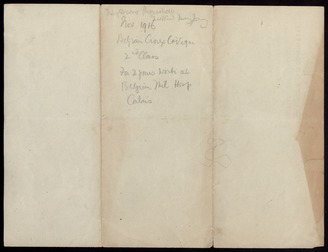 Nov. 1916
Belgian Croix Civique
2nd Class
For 2 years work at
Belgian Mil. Hosp
Calais